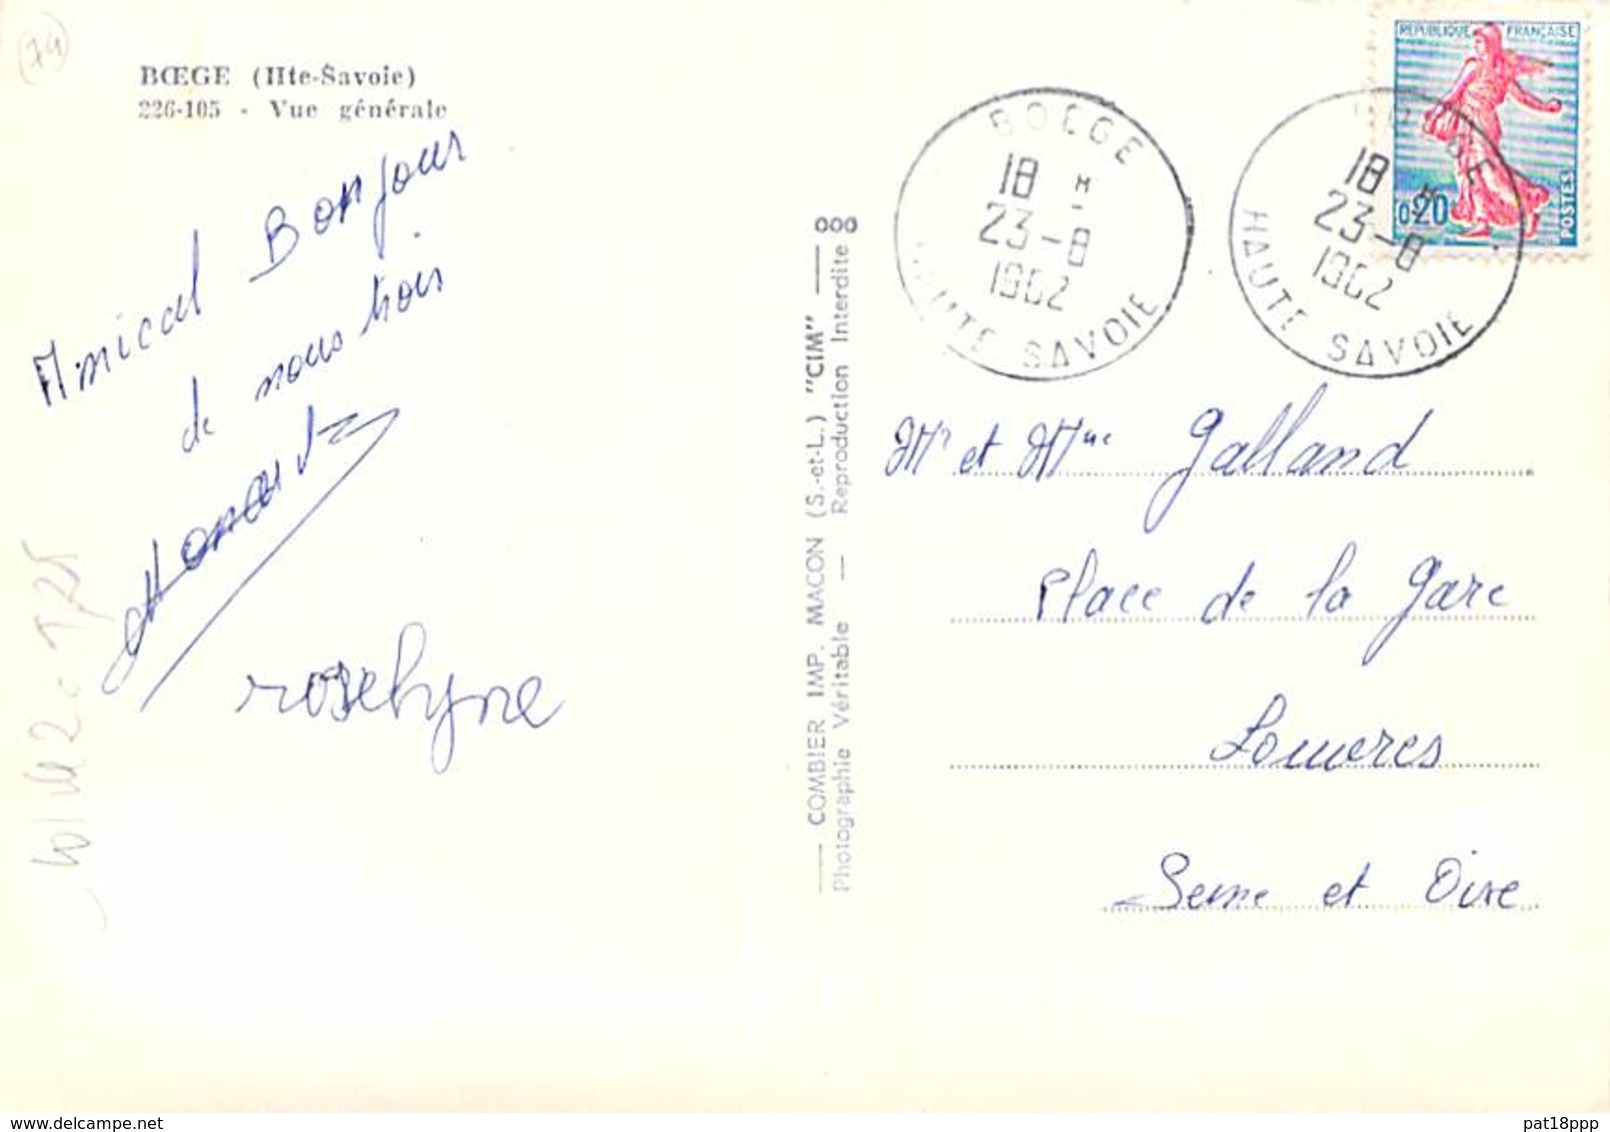 74
BŒGE (Hte-Savoie)
226-105 - Vue générale
Amical Bonjour
de nous trois
roselyne
000
COMBIER IMP. MACON (S.-et-L.) "CIM"
Photographie Véritable — Reproduction Interdite
BOEGE
18 H
23-8
1962
HAUTE SAVOIE
BOEGE
18 H
23-8
1962
HAUTE SAVOIE
REPUBLIQUE FRANÇAISE
0,20
POSTES
Mr et Mme Galland
Place de la Gare
Louvres
Seine et Oise
delcampe.net
pat18ppp